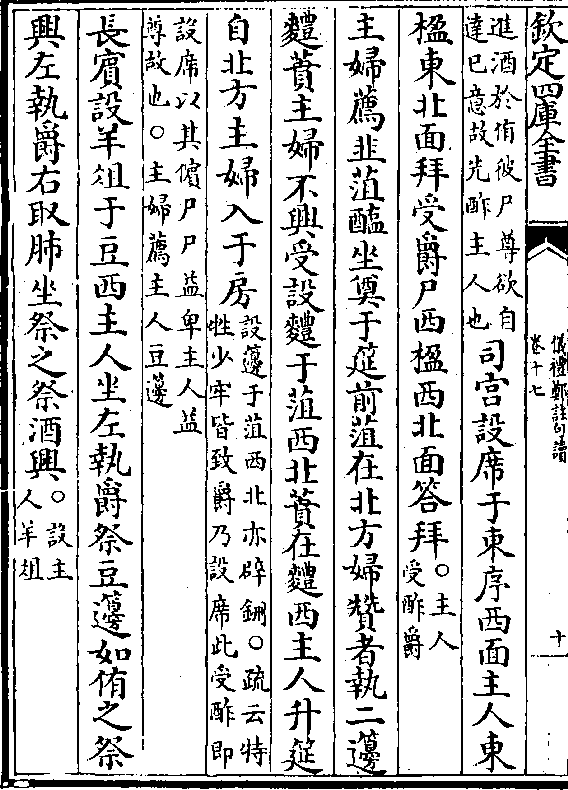 欽定四庫全書
儀禮鄭註句讀
卷十七
十
進酒於侑彼尸尊欲自
達已意故先酢主人也
司宮設席于東序西面主人東
楹東北面拜受爵尸西楹西北面答拜
○主人
受酢爵
主婦薦韭菹醢坐奠于筵前菹在北方婦贊者執二籩
麷蕡主婦不興受設麷于菹西北蕡在麷西主人升筵
自北方主婦入于房
設籩于菹西北亦辟鉶○疏云特
牲少牢皆致爵乃設席此受酢即
設席以其儐尸尸益卑主人益
尊故也○主婦薦主人豆籩
長賓設羊俎于豆西主人坐左執爵祭豆籩如侑之祭
興左執爵右取肺坐祭之祭酒興
○設主
人羊俎